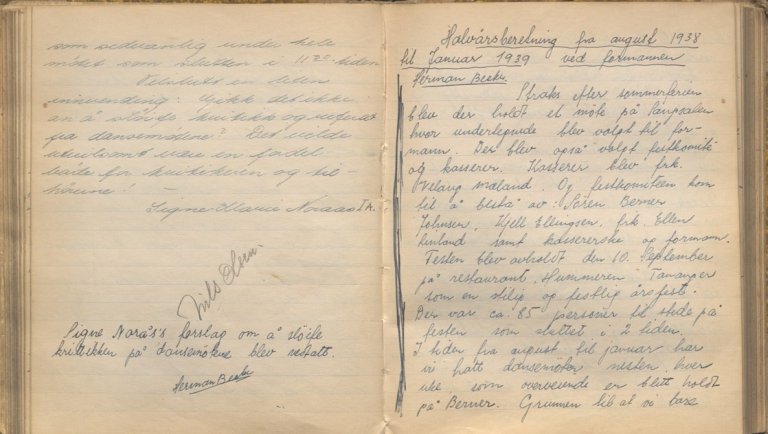 som sedvanlig under hele
møtet som sluttet i 11²⁰ tiden
Tilslutt en liten
innvending: Gikk det ikke
an å sløife kritikk og referat
fra dansemøtene? Det vilde
utvilsomt være en fordel
både for kritikeren og til-
hørerne!
Signe Marie Noraas I A.
Nils Olsen
Signe Norås's forslag om å sløife
kritikken på dansemøtene blev vedtatt.
Herman Becker
Halvårsberetning fra august 1938
til Januar 1939 ved formannen
Herman Becker.
Straks efter sommerferien
blev der holdt et møte på Sangsalen
hvor undertegnede blev valgt til for-
mann. Der blev også valgt festkomité
og kasserer. Kasserer blev frk.
Maland. Og festkomiteen kom
til å bestå av: Sören Berner
Johnsen, Kjell Ellingsen, frk. Ellen
samt kassererske og formann.
Festen blev avholdt den 10. September
på restaurant "Hummeren" Tananger
som en stilig og festlig årsfest.
Der var ca. 85 personer til stede på
festen som sluttet i 2 tiden.
I tiden fra august til januar har
vi hatt dansemøter nesten hver
uke, som overveiende er blitt holdt
på Berner. Grunnen til at vi bare